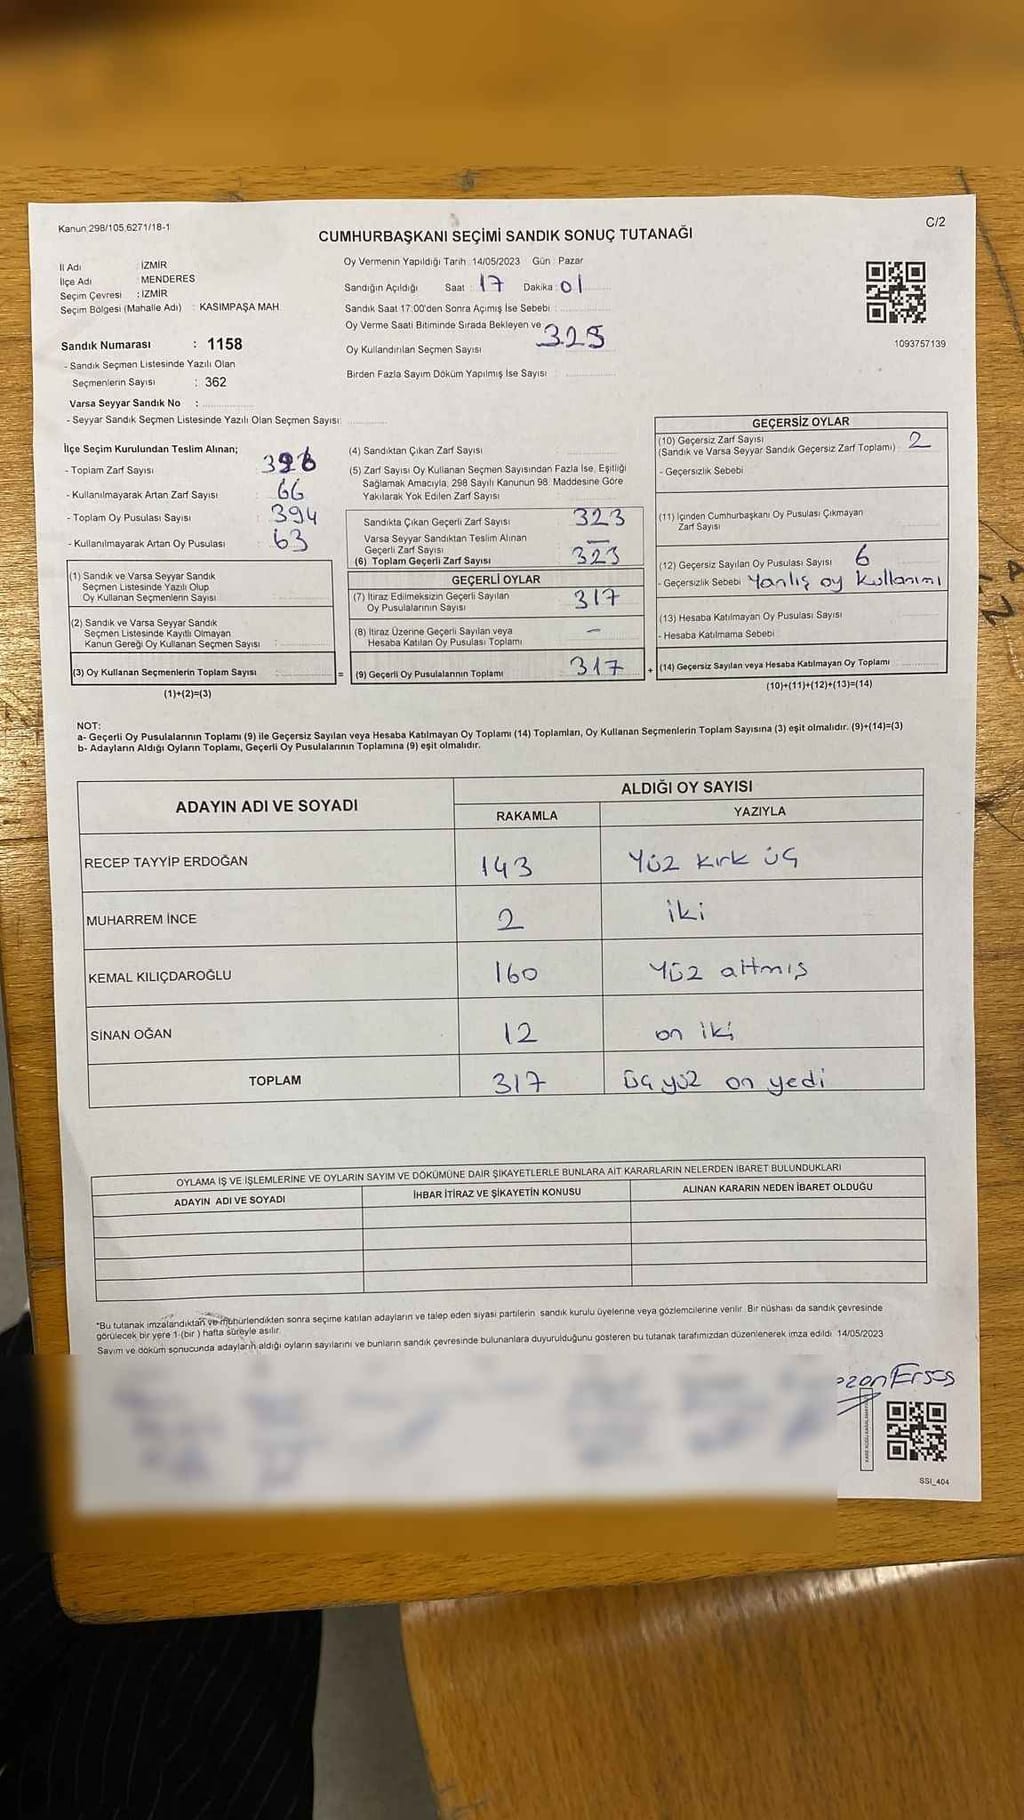 Kanun 298/105,6271/18-1
C/2
CUMHURBAŞKANI SEÇİMİ SANDIK SONUÇ TUTANAĞI
İl Adı : İZMİR
İlçe Adı : MENDERES
Seçim Çevresi : İZMİR
Seçim Bölgesi (Mahalle Adı) : KASIMPAŞA MAH.
Sandık Numarası : 1158
- Sandık Seçmen Listesinde Yazılı Olan
Seçmenlerin Sayısı : 362
Varsa Seyyar Sandık No :
- Seyyar Sandık Seçmen Listesinde Yazılı Olan Seçmen Sayısı:
Oy Vermenin Yapıldığı Tarih :14/05/2023 Gün : Pazar
Sandığın Açıldığı Saat : 17 Dakika : 01
Sandık Saat 17:00'den Sonra Açımış İse Sebebi :
Oy Verme Saati Bitiminde Sırada Bekleyen ve
Oy Kullandırılan Seçmen Sayısı : 325
Birden Fazla Sayım Döküm Yapılmış İse Sayısı :
1093757139
İlçe Seçim Kurulundan Teslim Alınan;
- Toplam Zarf Sayısı
- Kullanılmayarak Artan Zarf Sayısı : 66
- Toplam Oy Pusulası Sayısı : 394
- Kullanılmayarak Artan Oy Pusulası : 63
(1) Sandık ve Varsa Seyyar Sandık
Seçmen Listesinde Yazılı Olup
Oy Kullanan Seçmenlerin Sayısı :
(2) Sandık ve Varsa Seyyar Sandık
Seçmen Listesinde Kayıtlı Olmayan
Kanun Gereği Oy Kullanan Seçmen Sayısı :
(3) Oy Kullanan Seçmenlerin Toplam Sayısı :
(1)+(2)=(3)
(4) Sandıktan Çıkan Zarf Sayısı :
(5) Zarf Sayısı Oy Kullanan Seçmen Sayısından Fazla İse, Eşitliği
Sağlamak Amacıyla, 298 Sayılı Kanunun 98. Maddesine Göre
Yakılarak Yok Edilen Zarf Sayısı :
Sandıkta Çıkan Geçerli Zarf Sayısı : 323
Varsa Seyyar Sandıktan Teslim Alınan
Geçerli Zarf Sayısı : —
(6) Toplam Geçerli Zarf Sayısı : 323
GEÇERLİ OYLAR
(7) İtiraz Edilmeksizin Geçerli Sayılan
Oy Pusulalarının Sayısı : 317
(8) İtiraz Üzerine Geçerli Sayılan veya
Hesaba Katılan Oy Pusulası Toplamı : -
= (9) Geçerli Oy Pusulalarının Toplamı : 317 +
GEÇERSİZ OYLAR
(10) Geçersiz Zarf Sayısı
(Sandık ve Varsa Seyyar Sandık Geçersiz Zarf Toplamı) : 2
- Geçersizlik Sebebi
(11) İçinden Cumhurbaşkanı Oy Pusulası Çıkmayan
Zarf Sayısı
(12) Geçersiz Sayılan Oy Pusulası Sayısı : 6
- Geçersizlik Sebebi : Yanlış oy kullanımı
(13) Hesaba Katılmayan Oy Pusulası Sayısı :
- Hesaba Katılmama Sebebi :
(14) Geçersiz Sayılan veya Hesaba Katılmayan Oy Toplamı :
(10)+(11)+(12)+(13)=(14)
NOT:
a- Geçerli Oy Pusulalarının Toplamı (9) ile Geçersiz Sayılan veya Hesaba Katılmayan Oy Toplamı (14) Toplamları, Oy Kullanan Seçmenlerin Toplam Sayısına (3) eşit olmalıdır. (9)+(14)=(3)
b- Adayların Aldığı Oyların Toplamı, Geçerli Oy Pusulalarının Toplamına (9) eşit olmalıdır.
ADAYIN ADI VE SOYADI
ALDIĞI OY SAYISI
RAKAMLA YAZIYLA
RECEP TAYYİP ERDOĞAN 143 Yüz kırk üç
MUHARREM İNCE 2 iki
KEMAL KILIÇDAROĞLU 160 Yüz altmış
SİNAN OĞAN 12 on iki
TOPLAM 317 Üç yüz on yedi
OYLAMA İŞ VE İŞLEMLERİNE VE OYLARIN SAYIM VE DÖKÜMÜNE DAİR ŞİKAYETLERLE BUNLARA AİT KARARLARIN NELERDEN İBARET BULUNDUKLARI
ADAYIN ADI VE SOYADI İHBAR İTİRAZ VE ŞİKAYETİN KONUSU ALINAN KARARIN NEDEN İBARET OLDUĞU
*Bu tutanak imzalandıktan ve mühürlendikten sonra seçime katılan adayların ve talep eden siyasi partilerin sandık kurulu üyelerine veya gözlemcilerine verilir. Bir nüshası da sandık çevresinde
görülecek bir yere 1 (bir ) hafta süreyle asılır.
Sayım ve döküm sonucunda adayların aldığı oyların sayılarını ve bunların sandık çevresinde bulunanlara duyurulduğunu gösteren bu tutanak tarafımızdan düzenlenerek imza edildi. 14/05/2023
SSI_404